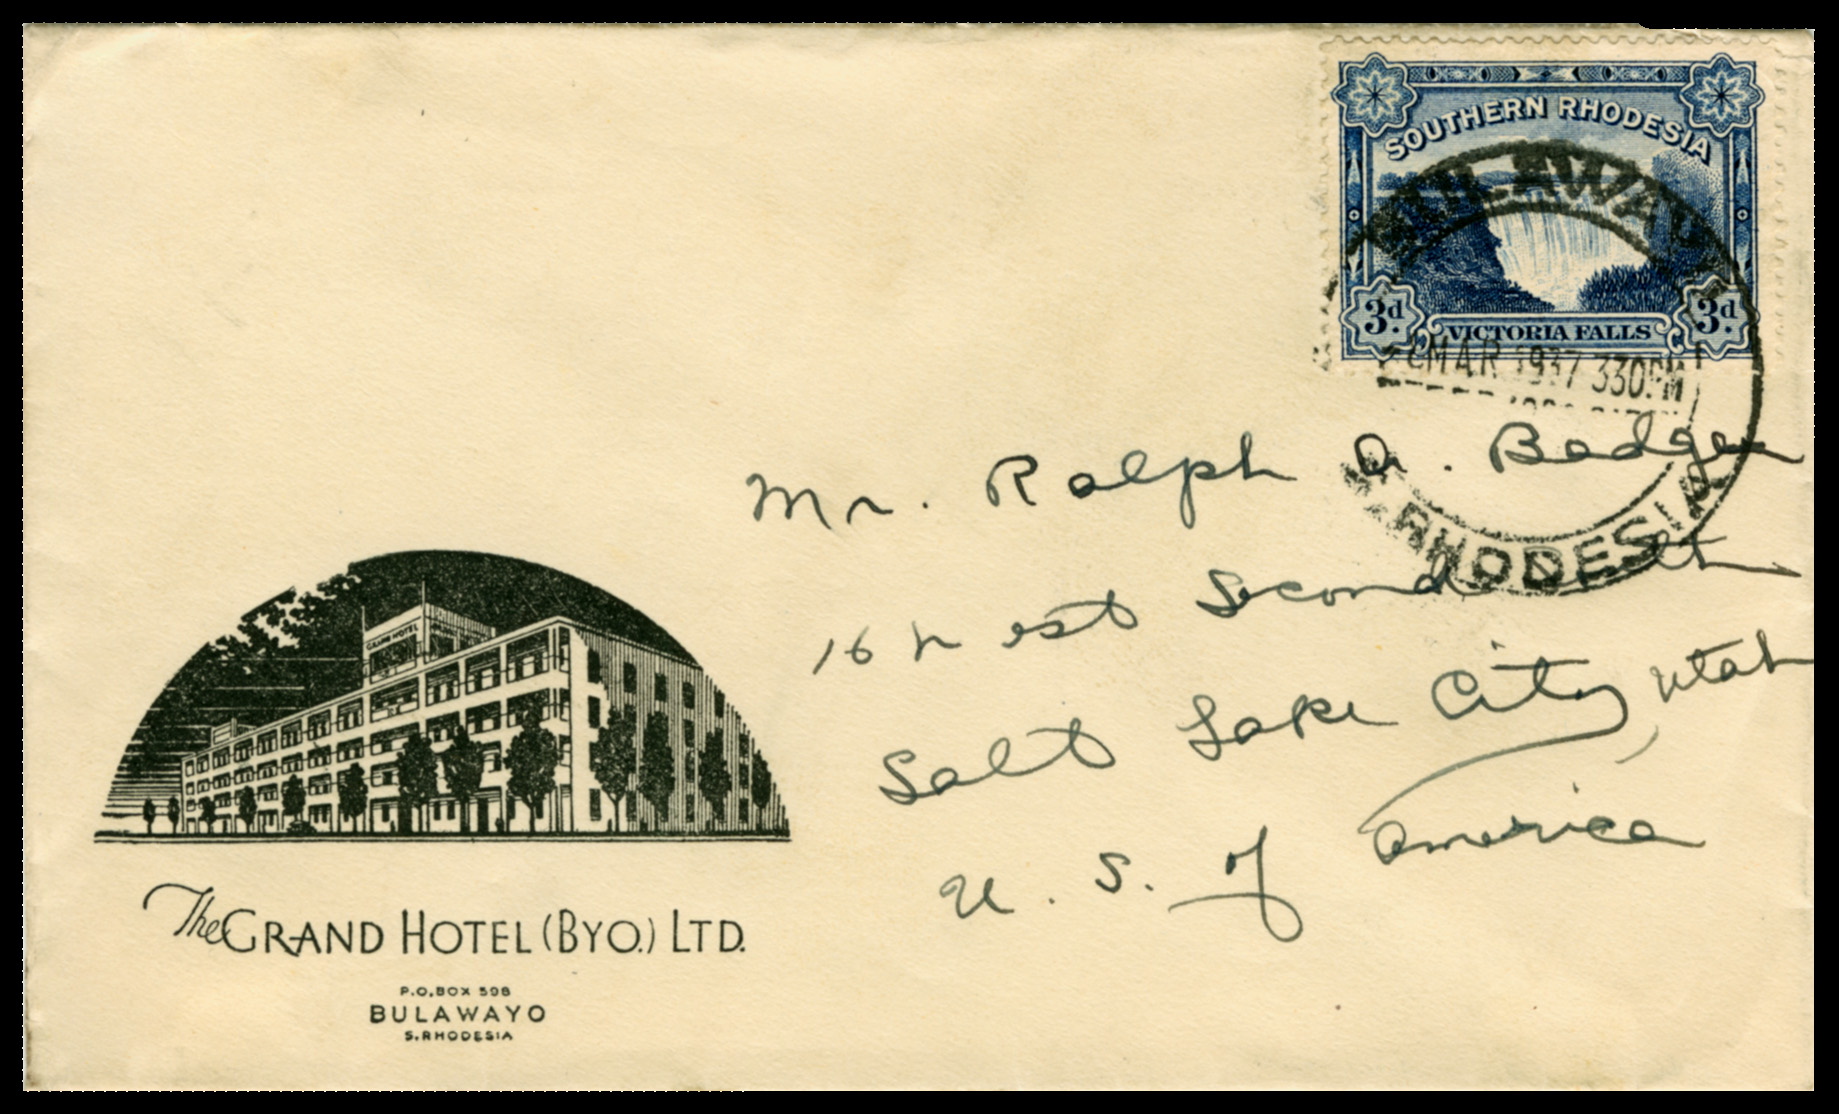 SOUTHERN RHODESIA
3d. VICTORIA FALLS 3d.
BULAWAYO
MAR 1937 330.PM
S. RHODESIA
Mr. Ralph A. Badger
16 West Second South
Salt Lake City, Utah
U. S. of America
GRAND HOTEL
The GRAND HOTEL (BYO.) LTD.
P.O. BOX 598
BULAWAYO
S. RHODESIA